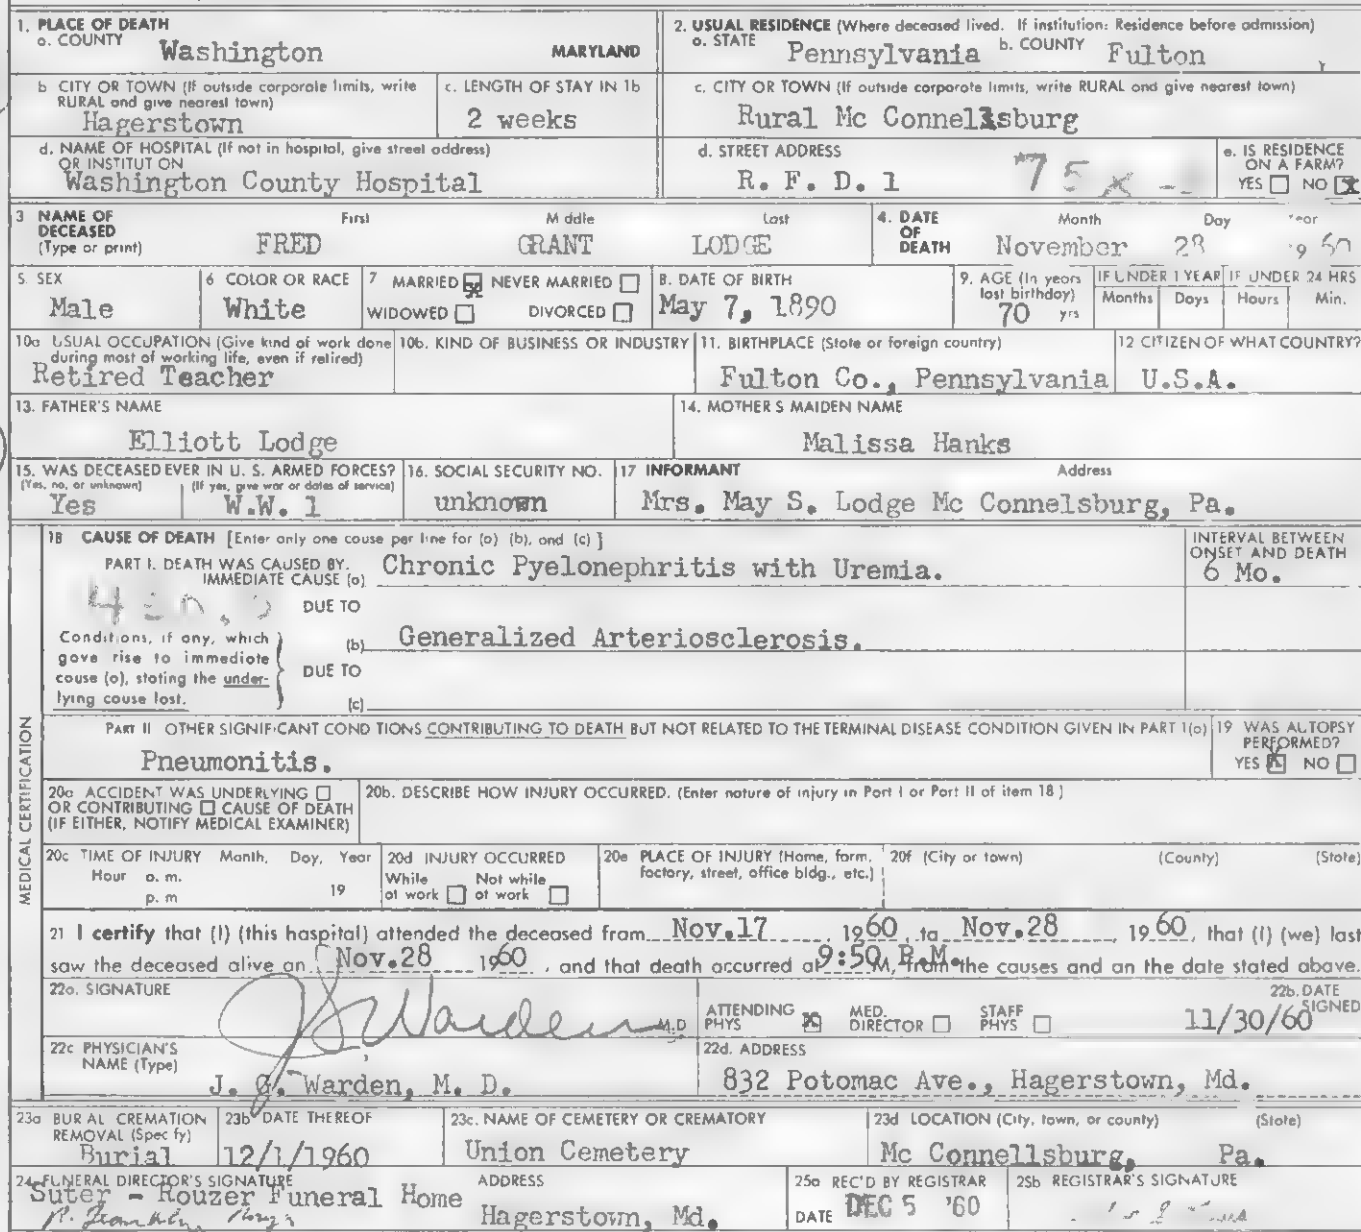 1. PLACE OF DEATH
a. COUNTY Washington MARYLAND
2. USUAL RESIDENCE (Where deceased lived. If institution: Residence before admission)
a. STATE Pennsylvania b. COUNTY Fulton
b CITY OR TOWN (If outside corporate limits, write RURAL and give nearest town)
Hagerstown
c. LENGTH OF STAY IN 1b
2 weeks
c. CITY OR TOWN (If outside corporate limits, write RURAL and give nearest town)
Rural Mc Connellsburg
d. NAME OF HOSPITAL (If not in hospital, give street address)
OR INSTITUT ON
Washington County Hospital
d. STREET ADDRESS
R. F. D. 1 75x
e. IS RESIDENCE ON A FARM?
YES NO X
3 NAME OF DECEASED (Type or print)
First Middle Last
FRED GRANT LODGE
4. DATE OF DEATH
Month Day Year
November 28 1960
5. SEX
Male
6 COLOR OR RACE
White
7 MARRIED X NEVER MARRIED
WIDOWED DIVORCED
8. DATE OF BIRTH
May 7, 1890
9. AGE (In years last birthday)
70 yrs
IF UNDER 1 YEAR IF UNDER 24 HRS
Months Days Hours Min.
10a USUAL OCCUPATION (Give kind of work done during most of working life, even if retired)
Retired Teacher
10b. KIND OF BUSINESS OR INDUSTRY
11. BIRTHPLACE (State or foreign country)
Fulton Co., Pennsylvania
12 CITIZEN OF WHAT COUNTRY?
U.S.A.
13. FATHER'S NAME
Elliott Lodge
14. MOTHER S MAIDEN NAME
Malissa Hanks
15. WAS DECEASED EVER IN U. S. ARMED FORCES?
(Yes, no, or unknown) (If yes, give war or dates of service)
Yes W.W. 1
16. SOCIAL SECURITY NO.
unknown
17 INFORMANT Address
Mrs. May S. Lodge Mc Connelsburg, Pa.
18 CAUSE OF DEATH [Enter only one cause per line for (a) (b), and (c) ]
INTERVAL BETWEEN ONSET AND DEATH
PART I. DEATH WAS CAUSED BY.
IMMEDIATE CAUSE (a) Chronic Pyelonephritis with Uremia. 6 Mo.
DUE TO
Conditions, if any, which gave rise to immediate cause (a), stating the under-lying cause last.
(b) Generalized Arteriosclerosis.
DUE TO
(c)
MEDICAL CERTIFICATION
PART II OTHER SIGNIFICANT COND TIONS CONTRIBUTING TO DEATH BUT NOT RELATED TO THE TERMINAL DISEASE CONDITION GIVEN IN PART 1(a)
Pneumonitis.
19 WAS AUTOPSY PERFORMED?
YES X NO
20a ACCIDENT WAS UNDERLYING
OR CONTRIBUTING CAUSE OF DEATH
(IF EITHER, NOTIFY MEDICAL EXAMINER)
20b. DESCRIBE HOW INJURY OCCURRED. (Enter nature of injury in Part I or Part II of item 18 )
20c TIME OF INJURY Month, Day, Year
Hour a. m.
p. m 19
20d INJURY OCCURRED
While at work Not while at work
20e PLACE OF INJURY (Home, farm, factory, street, office bldg., etc.)
20f (City or town) (County) (State)
21 I certify that (I) (this hospital) attended the deceased from Nov.17 1960, to Nov.28 1960, that (I) (we) last
saw the deceased alive on Nov.28 1960, and that death occurred at 9:50 P.M. M, from the causes and on the date stated above.
22a. SIGNATURE
J. G. Warden M.D
ATTENDING PHYS X MED. DIRECTOR STAFF PHYS
22b. DATE SIGNED
11/30/60
22c PHYSICIAN'S NAME (Type)
J. G. Warden, M. D.
22d. ADDRESS
832 Potomac Ave., Hagerstown, Md.
23a BURIAL CREMATION REMOVAL (Spec fy)
Burial
23b DATE THEREOF
12/1/1960
23c. NAME OF CEMETERY OR CREMATORY
Union Cemetery
23d LOCATION (City, town, or county) (State)
Mc Connellsburg, Pa.
24 FUNERAL DIRECTOR'S SIGNATURE ADDRESS
Suter - Rouzer Funeral Home
Hagerstown, Md.
25a REC'D BY REGISTRAR
DATE DEC 5 '60
25b REGISTRAR'S SIGNATURE